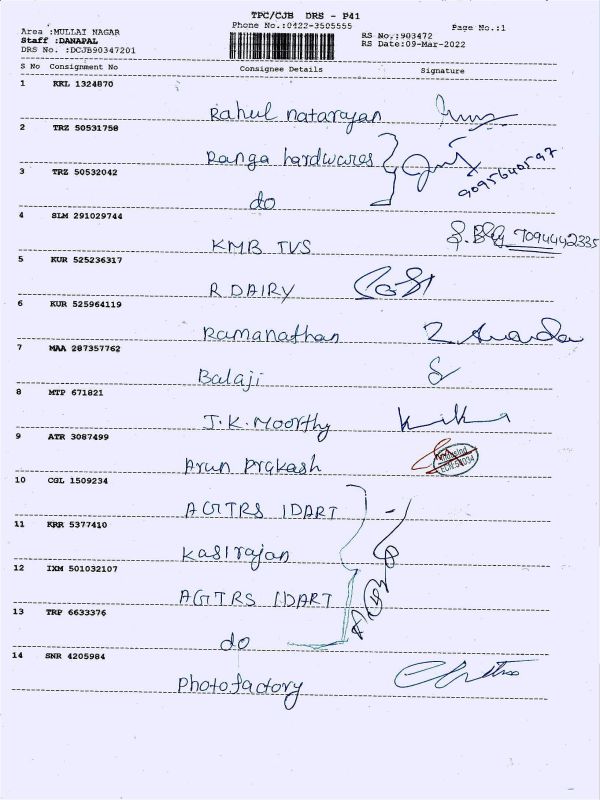 TPC/CJB DRS - P41
Area :MULLAI NAGAR Phone No.:0422-3505555 Page No.:1
Staff :DANAPAL RS No.:903472
DRS No. :DCJB90347201 RS Date:09-Mar-2022
S No Consignment No Consignee Details Signature
1 KKL 1324870
Rahul natarajan
2 TRZ 50531758
Ranga hardwares
3 TRZ 50532042 9095640597
do
4 SLM 291029744
KMB TVS 7094442335
5 KUR 525236317
R DAIRY
6 KUR 525964119
Ramanathan
7 MAA 287357762
Balaji
8 MTP 671821
J.K.Moorthy
9 ATR 3087499
Arun Prakash
10 CGL 1509234
AGTRS IDART
11 KRR 5377410
Kasirajan
12 IXM 501032107
AGTRS IDART
13 TRP 6633376
do
14 SNR 4205984
Photofactory